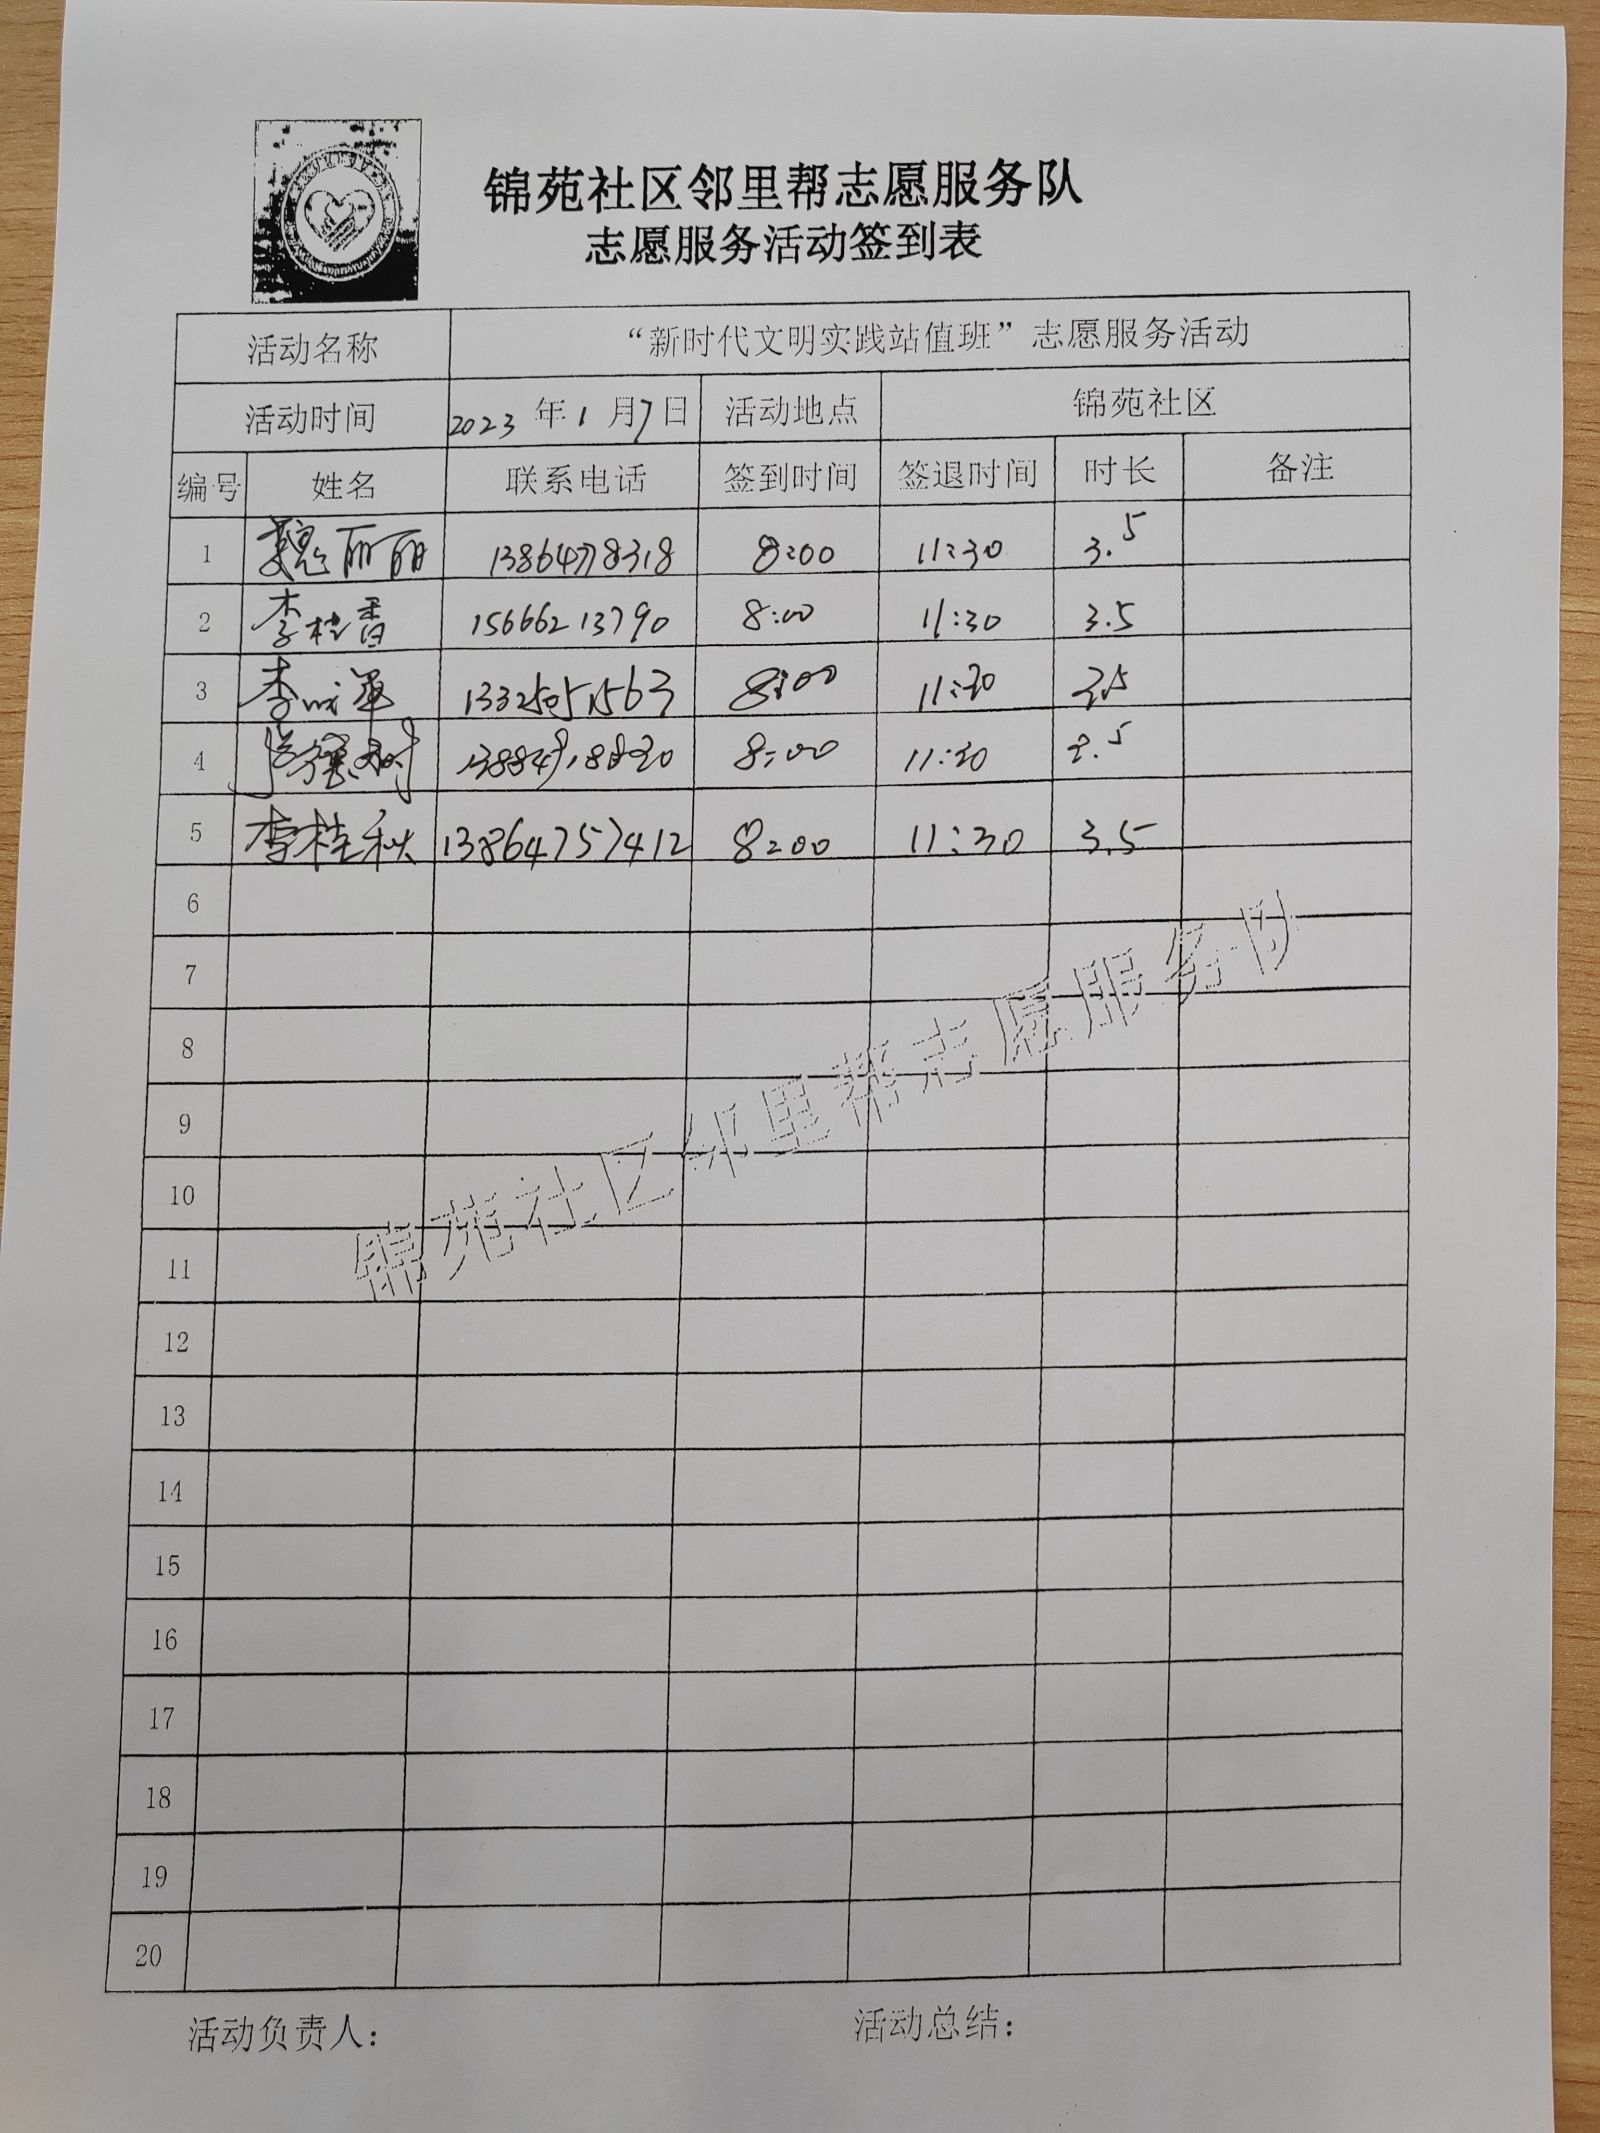 锦苑社区邻里帮志愿服务队
志愿服务活动签到表
活动名称 “新时代文明实践站值班”志愿服务活动
活动时间 2023 年 1 月 7 日 活动地点 锦苑社区
编号 姓名 联系电话 签到时间 签退时间 时长 备注
1 魏丽丽 13864778318 8:00 11:30 3.5
2 李桂香 15666213790 8:00 11:30 3.5
3 李 8:00 11:30 3.5
4 8:00 11:30 3.5
5 李桂秋 13864757412 8:00 11:30 3.5
6
7
8
9
10
11
12
13
14
15
16
17
18
19
20
锦苑社区邻里帮志愿服务队
活动负责人： 活动总结：